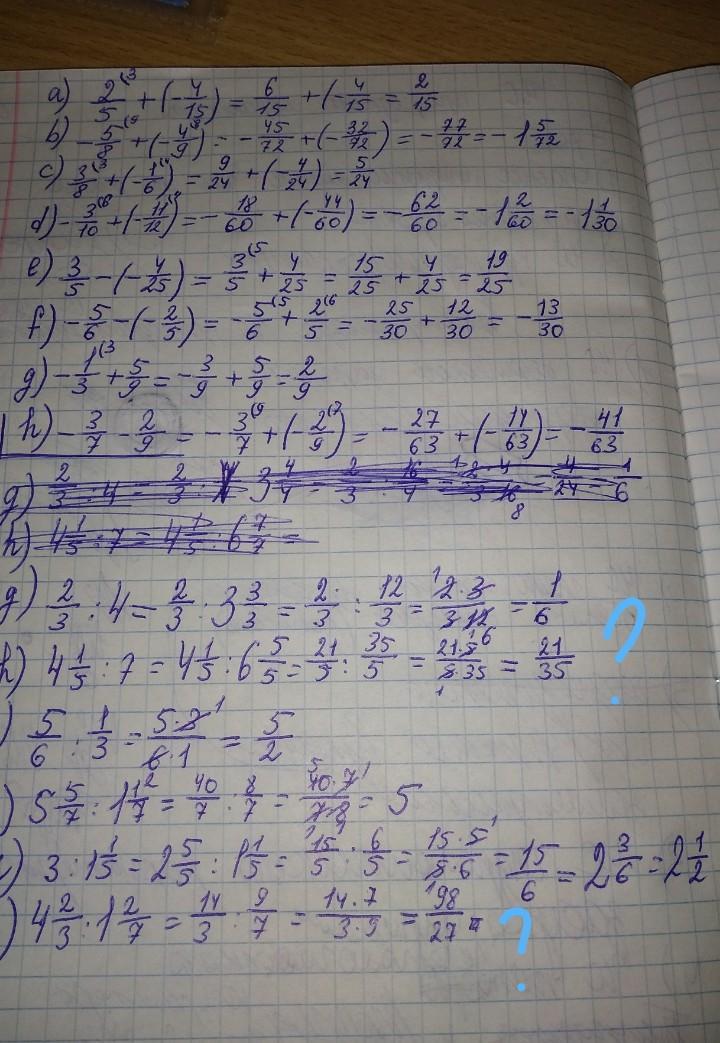 a) 2/5 (3 + (-4/15) = 6/15 + (-4/15 = 2/15
b) -5/8 (9 + (-4/9 (8) = -45/72 + (-32/72) = -77/72 = -1 5/72
c) 3/8 (3 + (-1/6 (4) = 9/24 + (-4/24) = 5/24
d) -3/10 (6 + (-11/12 (4) = -18/60 + (-44/60) = -62/60 = -1 2/60 = -1 1/30
e) 3/5 - (-4/25) = 3/5 (5 + 4/25 = 15/25 + 4/25 = 19/25
f) -5/6 - (-2/5) = -5/6 (5 + 2/5 (6 = -25/30 + 12/30 = -13/30
g) -1/3 (3 + 5/9 = -3/9 + 5/9 = 2/9
h) -3/7 - 2/9 = -3/7 (9 + (-2/9 (7) = -27/63 + (-14/63) = -41/63
g) 2/3 : 4 = 2/3 : 3 4/4 = 2/3 : 16/4 = 2·4/3·16 = 4/24 = 1/6
h) 4 1/5 : 7 = 4 1/5 : 6 7/7 =
g) 2/3 : 4 = 2/3 : 3 3/3 = 2/3 : 12/3 = 2·3/3·12 = 1/6
h) 4 1/5 : 7 = 4 1/5 : 6 5/5 = 21/5 : 35/5 = 21·5/5·35 = 21/35 ?
) 5/6 : 1/3 = 5·3/6·1 = 5/2
) 5 5/7 : 1 1/7 = 40/7 : 8/7 = 40·7/7·8 = 5
) 3 : 1 1/5 = 2 5/5 : 1 1/5 = 15/5 : 6/5 = 15·5/5·6 = 15/6 = 2 3/6 = 2 1/2
) 4 2/3 : 1 2/7 = 14/3 : 9/7 = 14·7/3·9 = 98/27 = ?